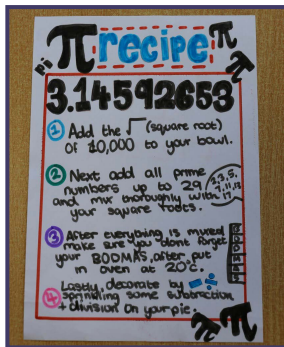 π recipe π
3.14592653
1 Add the √ (square root)
of 10,000 to your bowl.
2 Next add all prime
numbers up to 29
and mix thoroughly with
your square roots.
2,3,5,
7,11,13
17
3 After everything is mixed
make sure you dont forget
your BODMAS, after put
in oven at 20°C.
4 Lastly, decorate by
sprinkling some subtraction
+ division on your pie.
π π